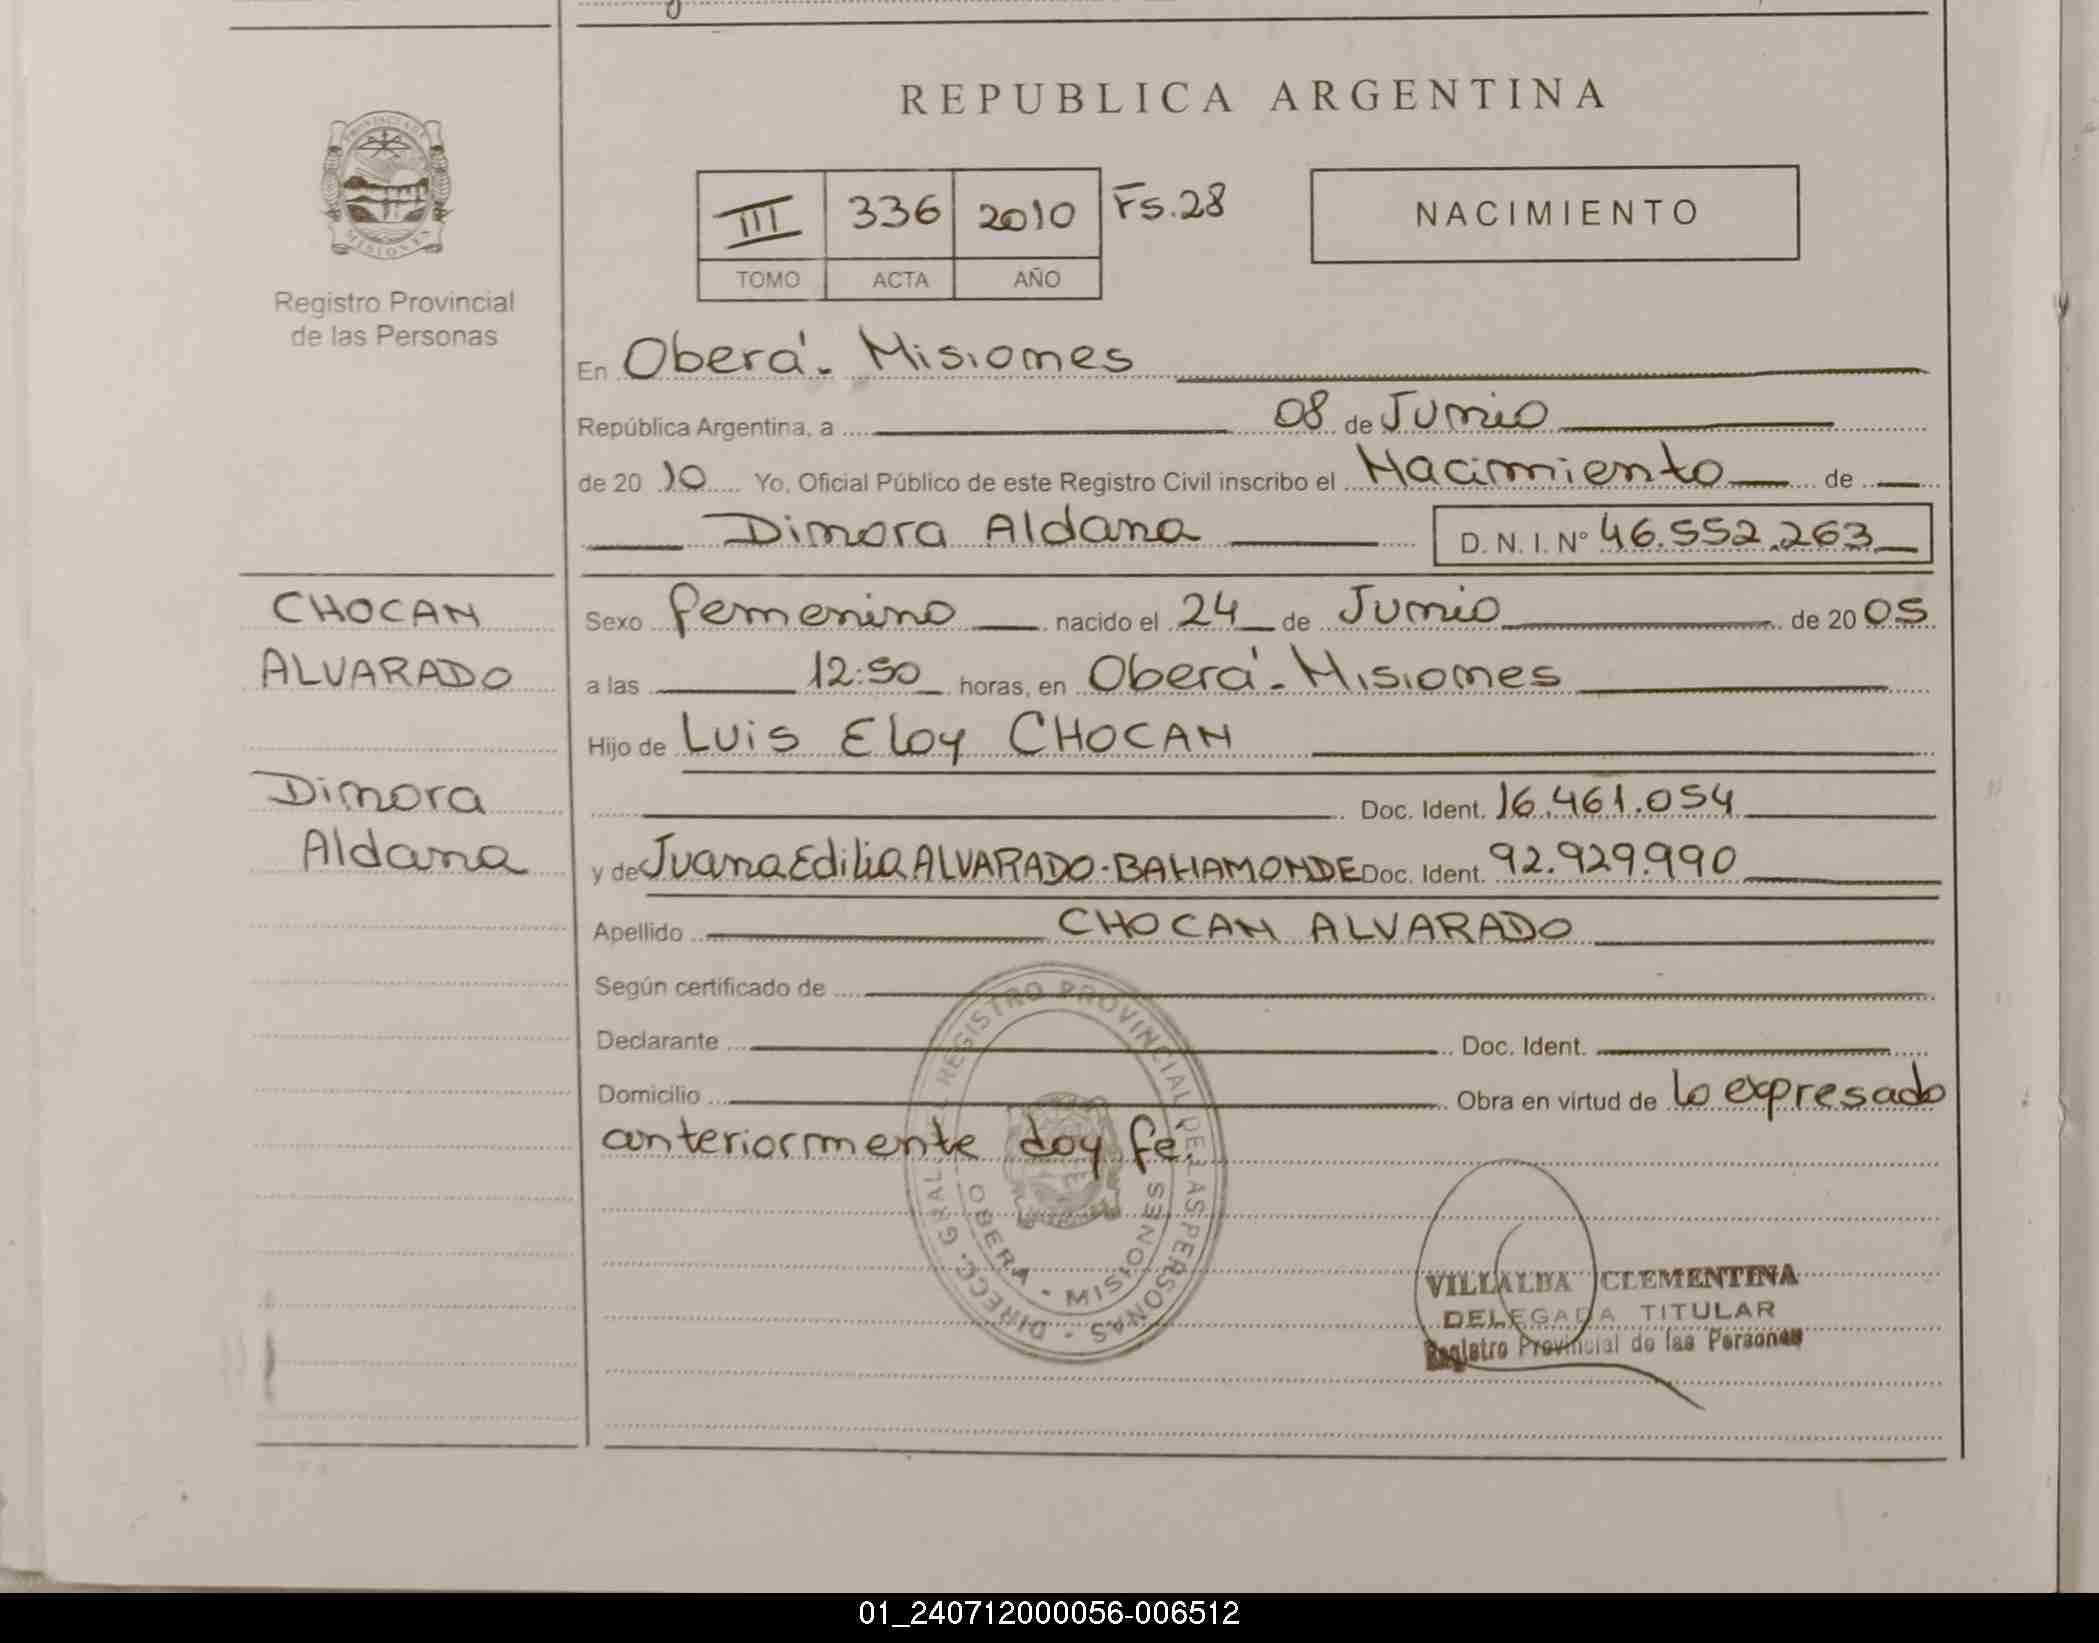 REPUBLICA ARGENTINA
PROVINCIA DE
MISIONES
Registro Provincial
de las Personas
III 336 2010 Fs.28
TOMO ACTA AÑO
NACIMIENTO
En Oberá - Misiones
República Argentina, a 08 de Junio
de 20 10 Yo, Oficial Público de este Registro Civil inscribo el Nacimiento de
Dinora Aldana D. N. I. Nº 46.552.263
CHOCAN
ALVARADO
Dinora
Aldana
Sexo femenino nacido el 24 de Junio de 20 05
a las 12:50 horas, en Oberá - Misiones
Hijo de Luis Eloy CHOCAN
Doc. Ident. 16.461.054
y de Juana Edilia ALVARADO-BAHAMONDE Doc. Ident. 92.929.990
Apellido CHOCAN ALVARADO
Según certificado de
Declarante Doc. Ident.
Domicilio Obra en virtud de lo expresado
anteriormente doy fé.
DIRECC. GRAL. REGISTRO PROVINCIAL DE LAS PERSONAS -
OBERA - MISIONES
VILLALBA CLEMENTINA
DELEGADA TITULAR
Registro Provincial de las Personas
01_240712000056-006512